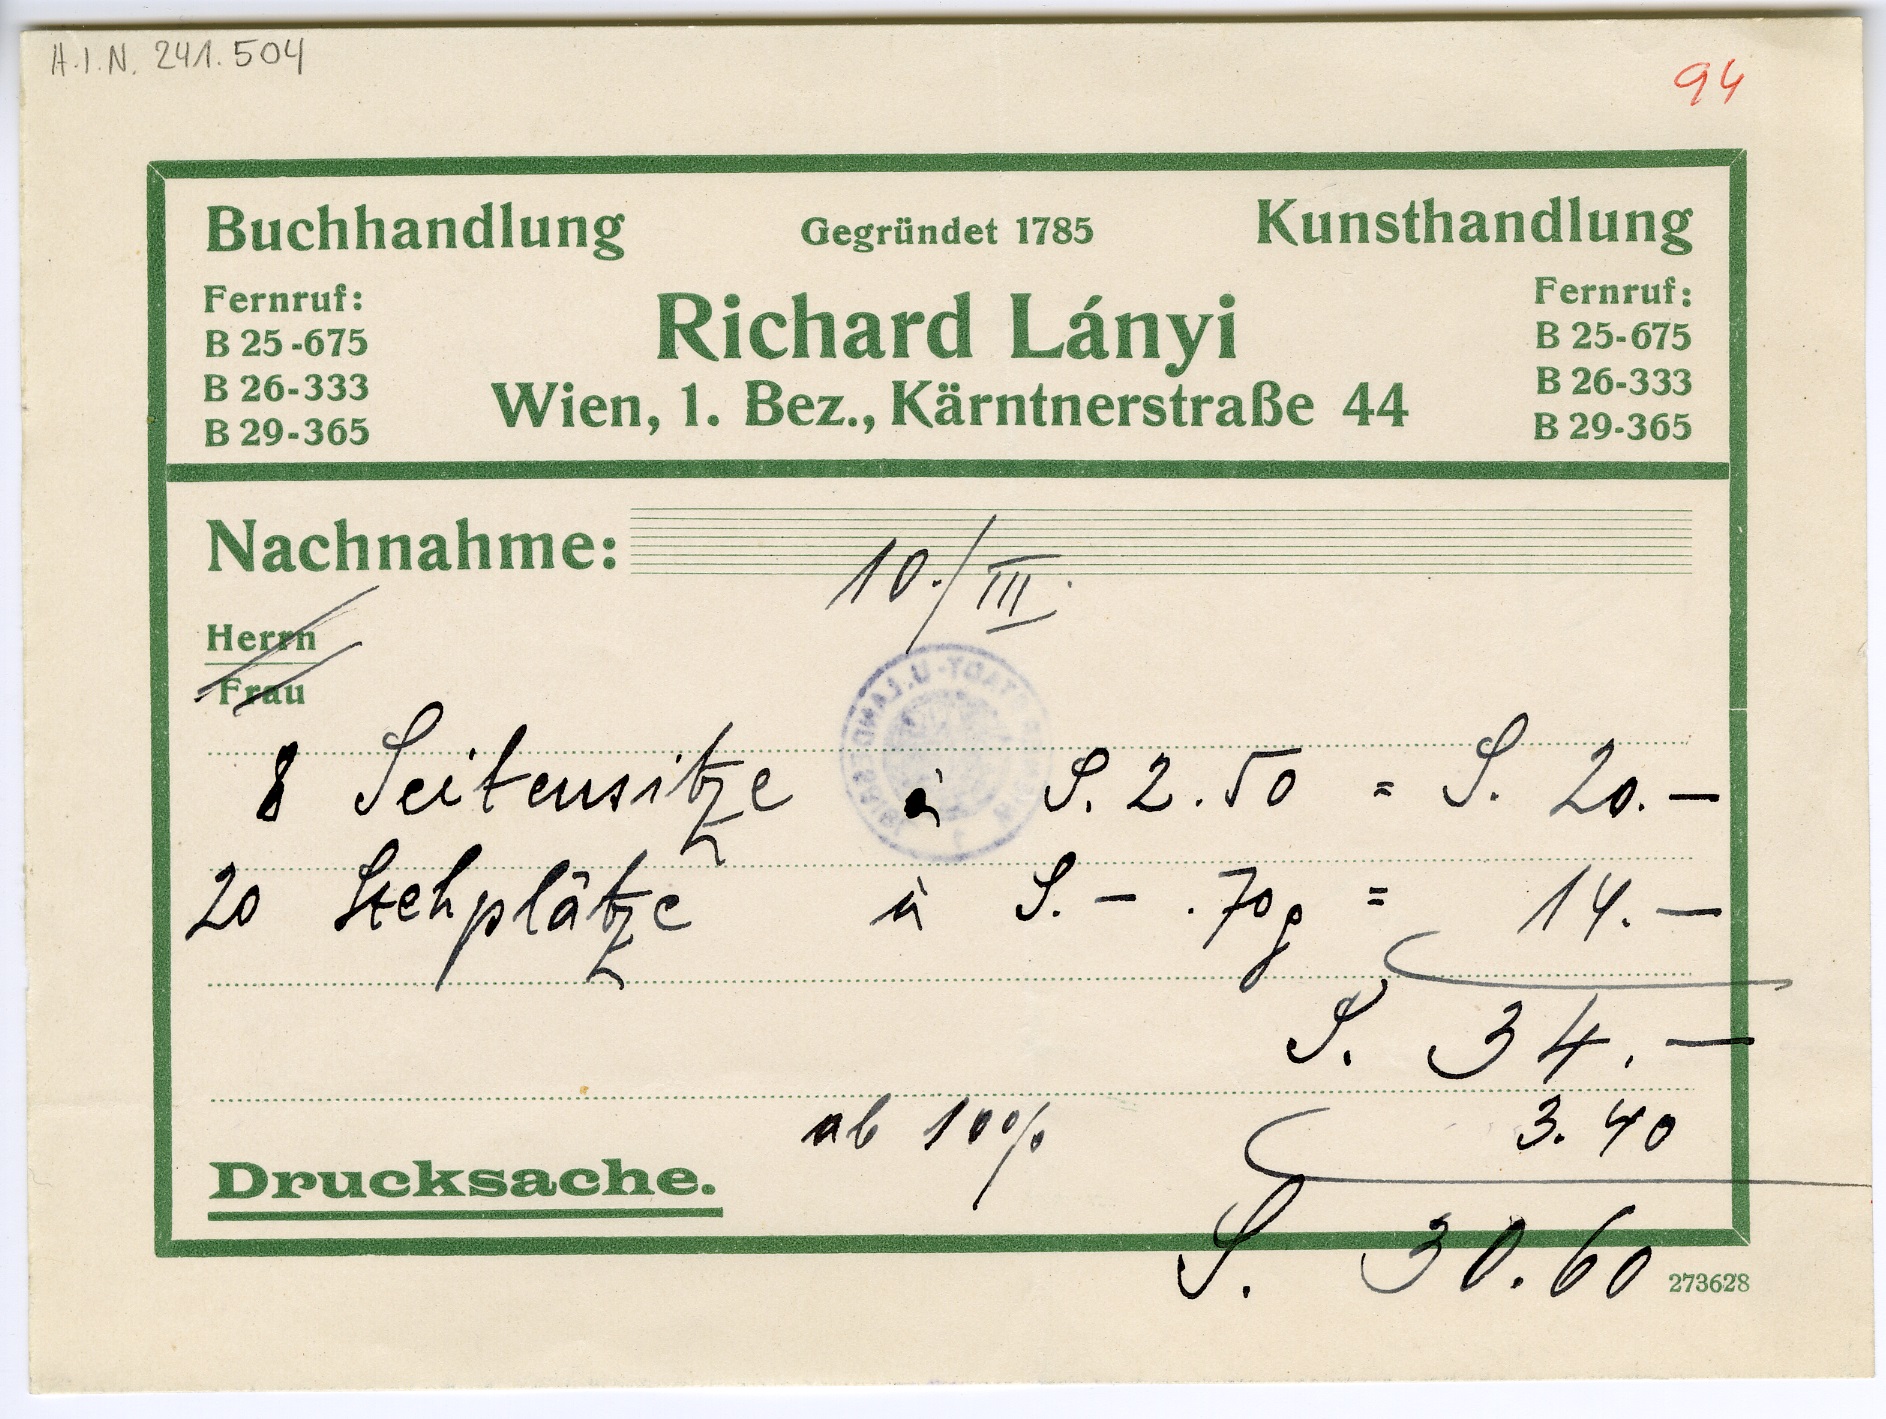 H.I.N. 241.504
94
Buchhandlung Gegründet 1785 Kunsthandlung
Fernruf: Fernruf:
Richard Lányi
B 25-675 B 25-675
B 26-333 B 26-333
Wien, 1. Bez., Kärntnerstraße 44
B 29-365 B 29-365
Nachnahme:
10./III.
Herrn
Frau
8 Seitensitze à S. 2.50 = S. 20.—
20 Stehplätze à S. — .70g = 14.—
S. 34.—
ab 10% 3.40
Drucksache.
S. 30.60
273628